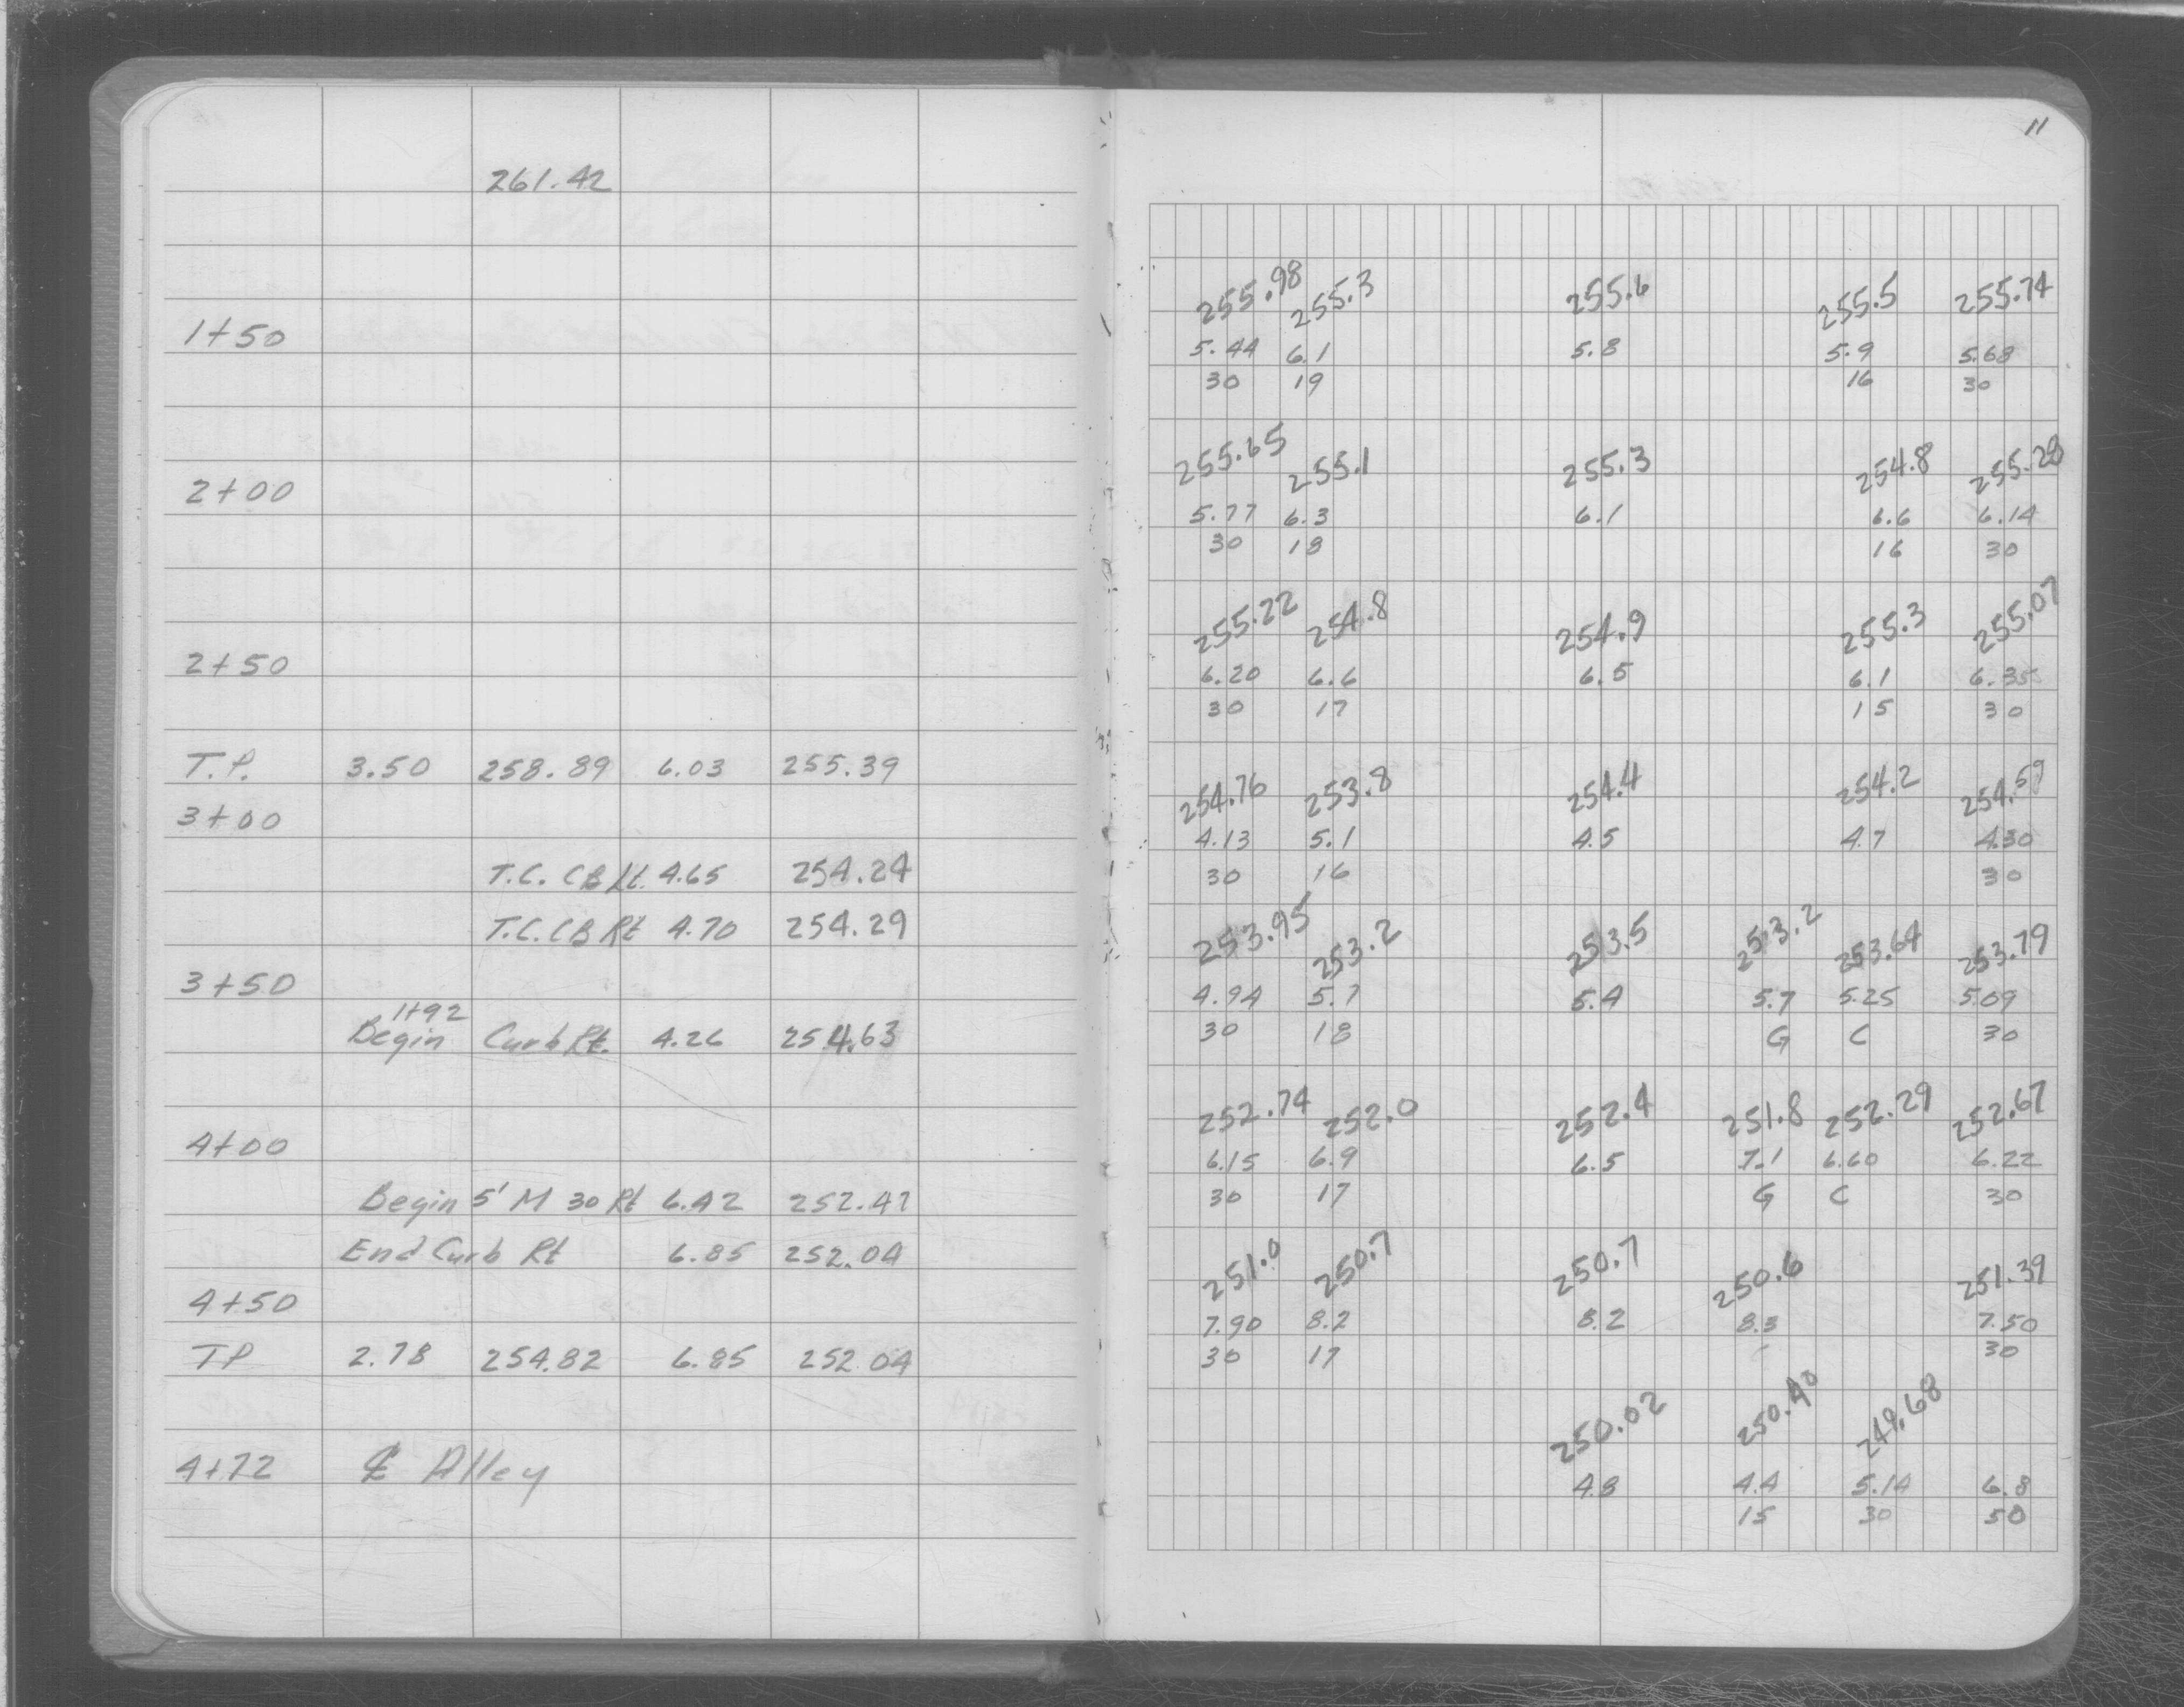 11
261.42
255.98 255.3 255.6 255.5 255.74
1+50 5.44 6.1 5.8 5.9 5.68
30 19 16 30
255.65 255.1 255.3 254.8 255.28
2+00 5.77 6.3 6.1 6.6 6.14
30 18 16 30
255.22 254.8 254.9 255.3 255.07
2+50 6.20 6.6 6.5 6.1 6.35
30 17 15 30
T.P. 3.50 258.89 6.03 255.39
254.76 253.8 254.4 254.2 254.59
3+00 4.13 5.1 4.5 4.7 4.30
T.C. CB Lt. 4.65 254.24
30 16 30
T.C. CB Rt 4.70 254.29
253.95 253.2 253.5 253.2 253.64 253.79
3+50 4.94 5.7 5.4 5.7 5.25 5.09
1+92
Begin Curb Rt. 4.26 254.63
30 18 G C 30
252.74 252.0 252.4 251.8 252.29 252.67
4+00 6.15 6.9 6.5 7.1 6.60 6.22
Begin 5' M 30 Rt 6.42 252.47
30 17 G C 30
End Curb Rt 6.85 252.04
251.0 250.7 250.7 250.6 251.39
4+50 7.90 8.2 8.2 8.3 7.50
TP 2.78 254.82 6.85 252.04
30 17 30
250.02 250.40 249.68
4+72 ℄ Alley 4.8 4.4 5.14 6.8
15 30 50